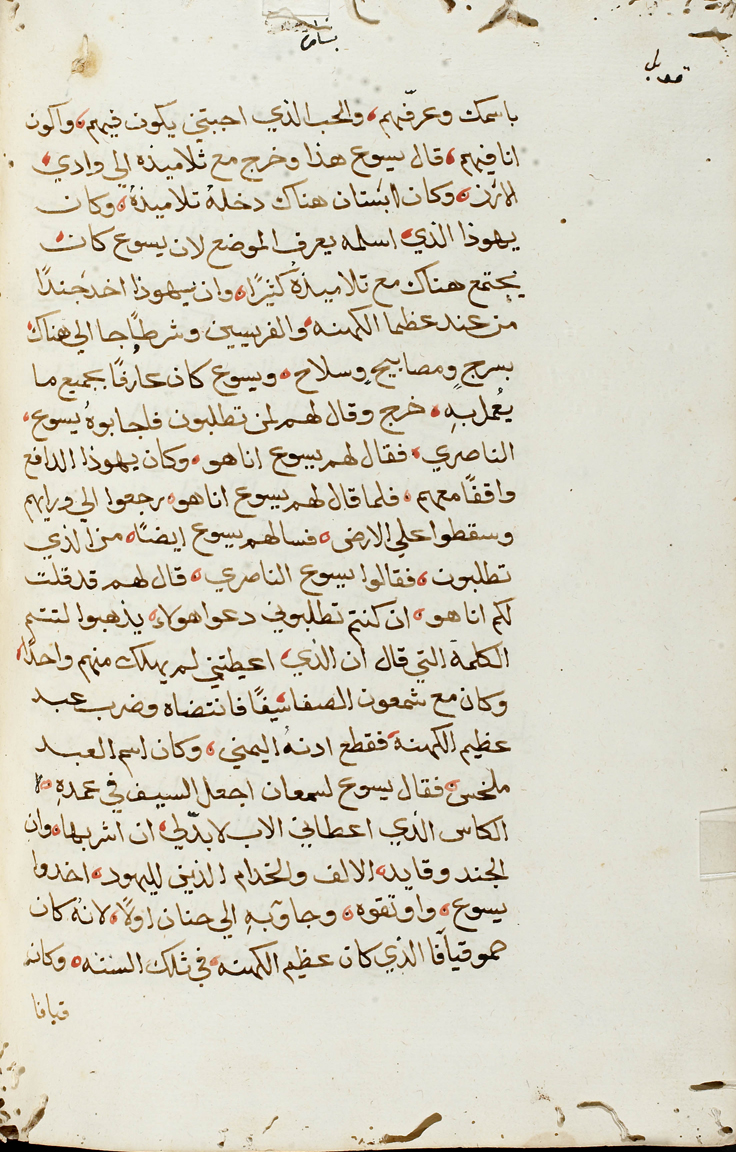 باسمك وعرفّهم، والحب الذي احببتني يكون فيهم، واكون
انا فيهم، قال يسوع هذا وخرج مع تلاميذه الي وادي،
الارزن، وكان ابستان هناك دخلهُ تلاميذهُ، وكان
يهوذا الذي اسلمه يعرف الموضع لان يسوع كان
يجتمع هناك مع تلاميذهُ كثيرًا، وان يهوذا اخد جندًا
من عند عظما الكهنه، والفريسيين وشرطًا جا الي هناك
بسرج ومصابيح وسلاح، ويسوع كان عارفًا بجميع ما
يعُمل بهِ، خرج وقال لهم لمن تطلبون فاجابوهُ يسوع،
الناصري، فقال لهم يسوع انا هو، وكان يهوذا الدافع
واقفًا معهم، فلما قال لهم يسوع انا هو، رجعوا الي ورايهم
وسقطوا علي الارض، فسالهم يسوع ايضًا، من الذي
تطلبون، فقالوا يسوع الناصري، قال لهم قد قلت
لكم انا هو، ان كنتم تطلبوني دعوا هولاء، يذهبوا لتتم
الكلمة التي قال ان الذي اعيطتني لم يهلك منهم واحدًا،
وكان مع شمعون الصفا سيفًا فانتضاه وضرب عبد
عظيم الكهنة، فقطع ادنهُ اليمني، وكان اسم العبد
ملخس، فقال يسوع لسمعان اجعل السيف في غمدهِ، لا
الكاس الذي اعطاني الاب لا بدّ لي ان اشربها، وان
الجند وقايد الالف والخدام الذين لليهود، اخدوا
يسوع، واوتقوه، وجاوٓ بهِ الي حنان اولًا، لانهُ كان
حمو قيافا الذي كان عظيم الكهنه، في تلك السنه، وكان
قيافا